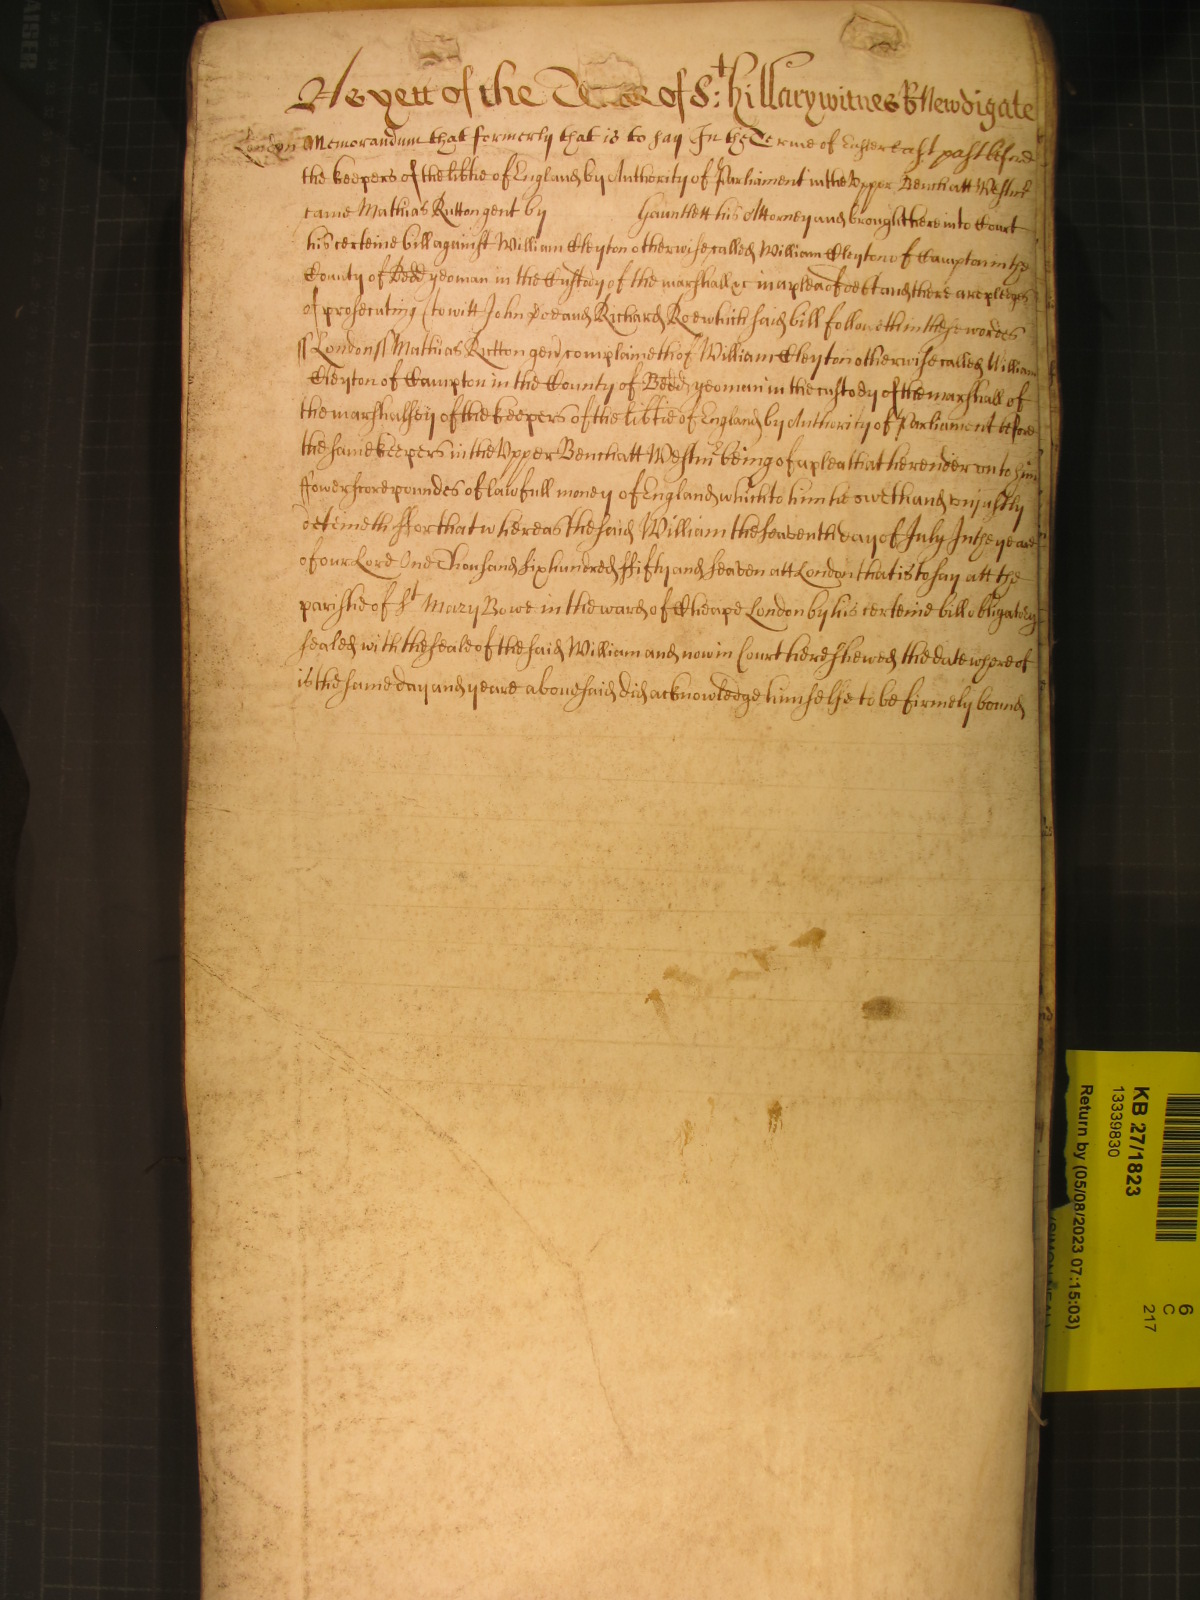 As yett of the Terme of St: Hillary witnes R Newdigate
London Memorandum that formerly that is to say In the Terme of Easter last past before
the keepers of the libtie of England by Authority of Parliament in the Upper Bench att Westmr
came Mathias Rutton gent by Gauntlett his Attorney and brought here into Court
his certeine bill against William Cleyton otherwise called William Cleyton of Campton in the
County of Bedd yeoman in the Custody of the marshall &c in a plea of debt and there are pledges
of prosecuting (to witt) John Doe and Richard Roe which said bill followeth in these wordes
ss London ss Mathias Rutton gen complaineth of William Cleyton otherwise called William
Cleyton of Campton in the County of Bedd yeoman in the custody of the marshall of
the marshalsey of the keepers of the libtie of England by Authority of Parliament before
the same keepers in the Upper Bench att Westmr being of a plea that he render unto him
ffower score poundes of lawfull money of England which to him he oweth and unjustly
deteineth ffor that whereas the said William the seaventh day of July In the yeare
of our Lord One Thousand six hundred ffifty and seaven att London that is to say att the
parishe of St Mary Bowe in the ward of Cheape London by his certeine bill obligatory
sealed with the seale of the said William and now in Court here shewed the date whereof
is the same day and yeare abovesaid did acknowledge himselfe to be firmely bound
KB 27/1823
13339830
Return by (05/08/2023 07:15:03)
6
C
217